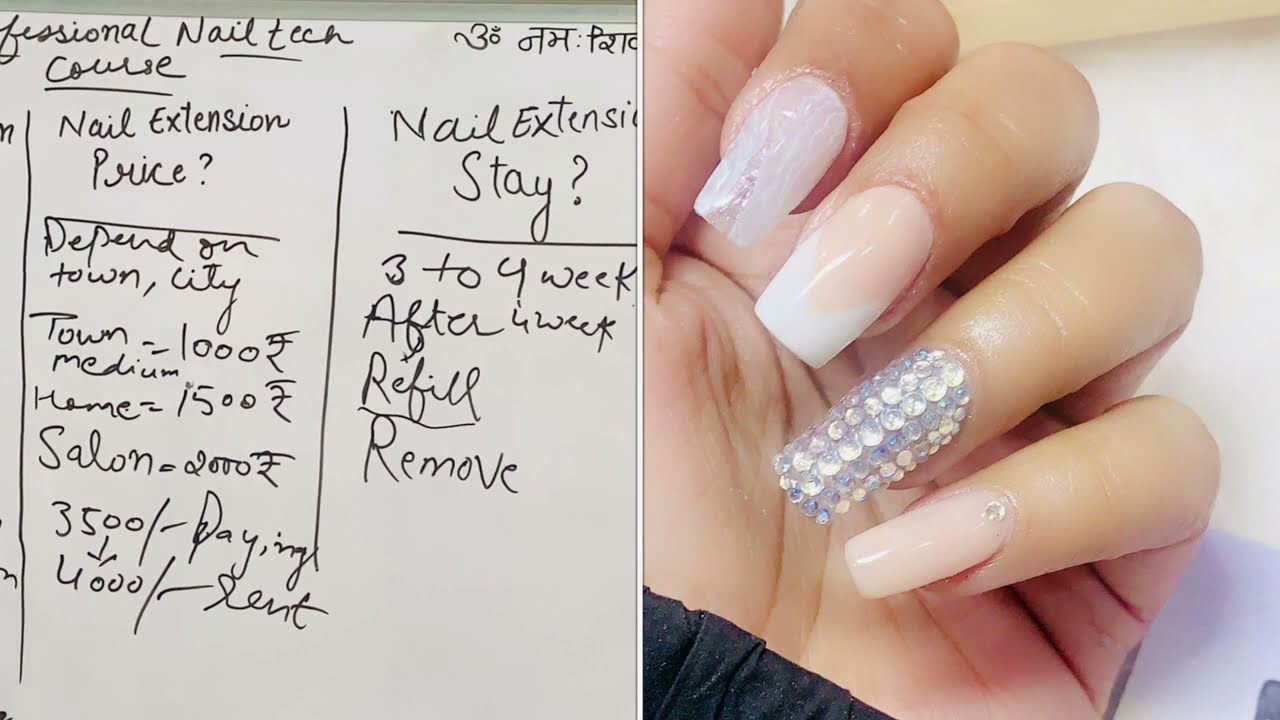 ofessional Nail tech
Course
ॐ नमः शिव
Nail Extension
Price?
Depend on
town, city
Town
medium = 1000₹
Home = 1500₹
Salon = 2000₹
3500/- Paying
4000/- Rent
Nail Extensi
Stay?
3 to 4 week
After 4 week
Refill
Remove